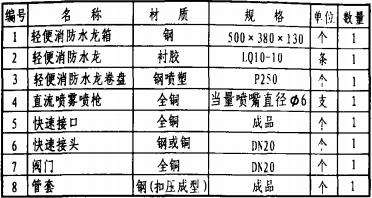 编号 名称 材质 规格 单位 数量
1 轻便消防水龙箱 钢 500×380×130 个 1
2 轻便消防水龙 衬胶 LQ10-10 条 1
3 轻便消防水龙卷盘 钢喷塑 P250 个 1
4 直流喷雾喷枪 全铜 当量喷嘴直径Φ6 支 1
5 快速接口 全铜 成品 个 1
6 快速接头 钢或铜 DN20 个 1
7 阀门 全铜 DN20 个 1
8 管套 钢(扣压成型) 成品 个 1